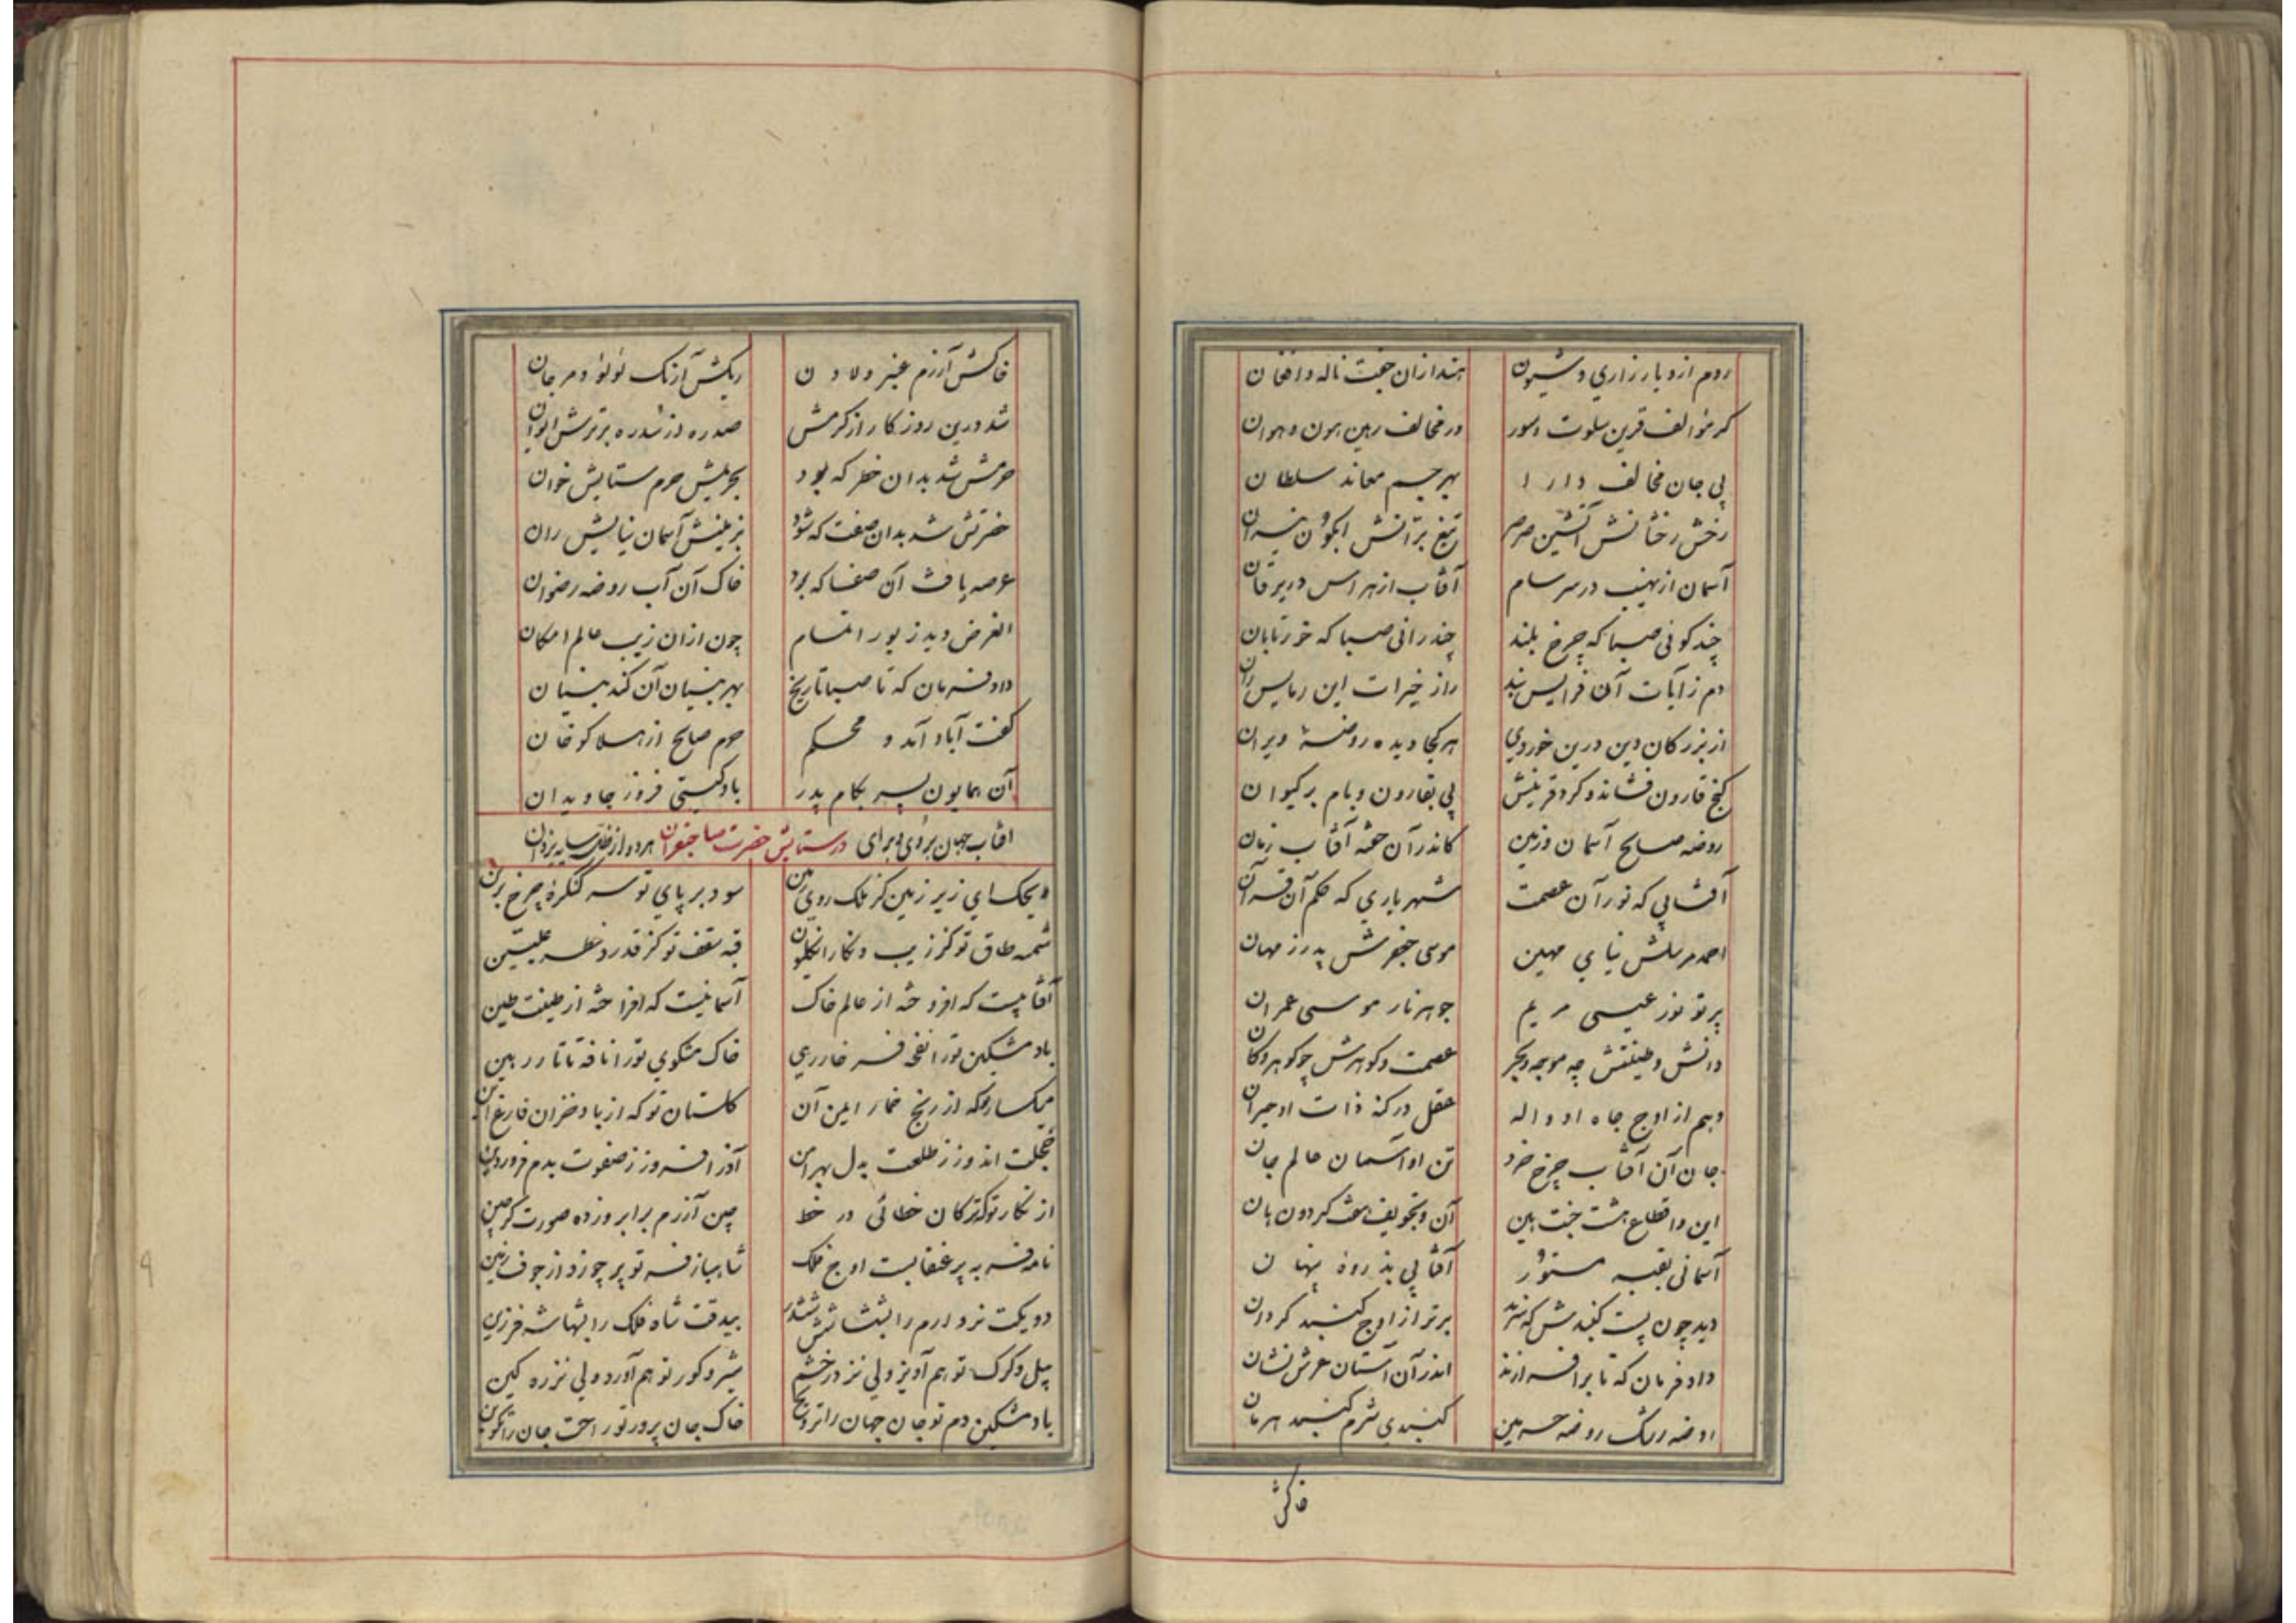 روم ازو یار زاری و شیون هند ازان جفت ناله و افغان
کر موالف قرین سلوت و سور ور مخالف رهین هون و هوان
پی جان مخالف دارا بهر جسم معاند سلطان
رخش رخشانش آتشین صرصر تیغ برّانش آبگون نیران
آسمان از نهیب در سرسام آفتاب از هراس در یرقان
چند کوئی صبا که چرخ بلند چند رانی صبا که خور تابان
دم ز آیات آن فرایس بند راز خیرات این رمایس ران
از بزرکان دین درین خوردی هر کجا دیده روضهٔ ویران
کنج قارون فشاند و کرد قرینش پی بقارون و بام بر کیوان
روضه صالح آسمان و زمین کاندر آن خفته آفتاب زمان
آفتابی که نور آن عصمت شهریاری که حکم آن قرآن
احمد مرسلش نیای مهین موسی جعفرش پدر ز مهان
پرتو نور عیسی مریم جوهر نار موسی عمران
دانش و طینتش چه موجه و بحر عصمت و کوهرش چو کوهر و کان
وهم از اوج جاه او واله عقل در کنه ذات او حیران
جان آن آفتاب چرخ خرد تن او آسمان عالم جان
این و اقطاع هشت جنت بین آن و تجویف هفت کردون بان
آسمانی بقبه مستور آفتابی بذروه پنهان
دید چون پست کنبدش که سزد برتر از اوج کنبد کردان
داد فرمان که تا برافرازند اندر آن آستان عرش نشان
روضه رشک روضه حرمین کنبدی شرم کنبد هرمان
خاکش
خاکش آزرم عنبر و لادن ریکش آژنک لولو و مرجان
شد درین روزکار از کرمش صد ره از سدره برترش ایوان
حرمش شد بدان خطر که بود جبرئیلش حرم ستایش خوان
حضرتش شد بدان صفت که شود بزمینش آسمان نیایش ران
عرصه یافت آن صفا که بود خاک آن آب روضه رضوان
الغرض دید زیور اتمام چون ازان زیب عالم امکان
داد فرمان که تا صبا تاریخ بهر بنیان آن کند بنیان
کفت آباد آمد و محکم حرم صالح از هلاکو خان
آن همایون پسر بکام پدر باد کیتی فروز جاویدان
افتاب جهان بروی و برای در ستایش حضرت صاحبقران هر دو از ظل سایه یزدان
ویحک ای زیر زمین کز فلک روی زمین سود بر پای تو سر کنکره چرخ برین
شمسه طاق تو کز زیب و نکار انکلیون قبه سقف تو کز قدر و خطر علیین
آفتابیست که افروخته از عالم خاک آسمانیست که افراخته از طینت طین
باد مشکین تو را نفخه فرخار رهی خاک مشکوی تو را نافه تاتار رهین
میکسار تو که از رنج خمار ایمن آن کلستان تو که از باد خزان فارغ این
خجلت اندوز ز طلعت بدل بهرامن آذر افروز ز صفوت بدم فروردین
از نکار تو که ترکان خطائی در خط چین آزرم بر ابرو زده صورت کر چین
نامه فر به پر عنقابست اوج فلک شاهباز فر تو پر چو زد از جوف زمین
دو یکت نرد ارم را بشتاند ششدر بیدقت شاه فلک را بنهاشه فرزین
پیل و کرک تو هم آویز ولی نز در خشم شیر و کور تو هم آورد ولی نز ره کین
باد مشکین دم تو جان جهان را ترویح خاک جان پرور تو راحت جان را تکوین